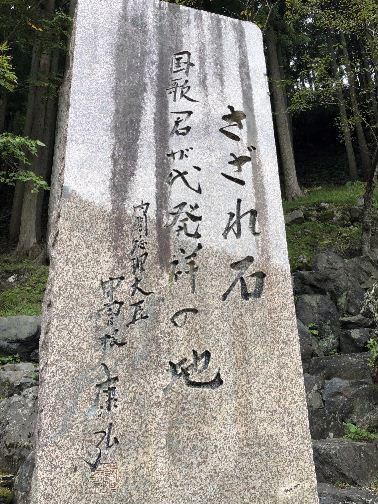 さざれ石
国歌君が代発祥の地
内閣総理大臣
中曽根康弘